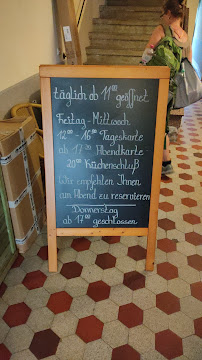 täglich ab 11⁰⁰ geöffnet
Freitag - Mittwoch
12⁰⁰ - 16⁰⁰ Tageskarte
ab 17⁰⁰ Abendkarte
20⁰⁰ Küchenschluß
Wir empfehlen Ihnen
am Abend zu reservieren
Donnerstag
ab 17⁰⁰ geschlossen